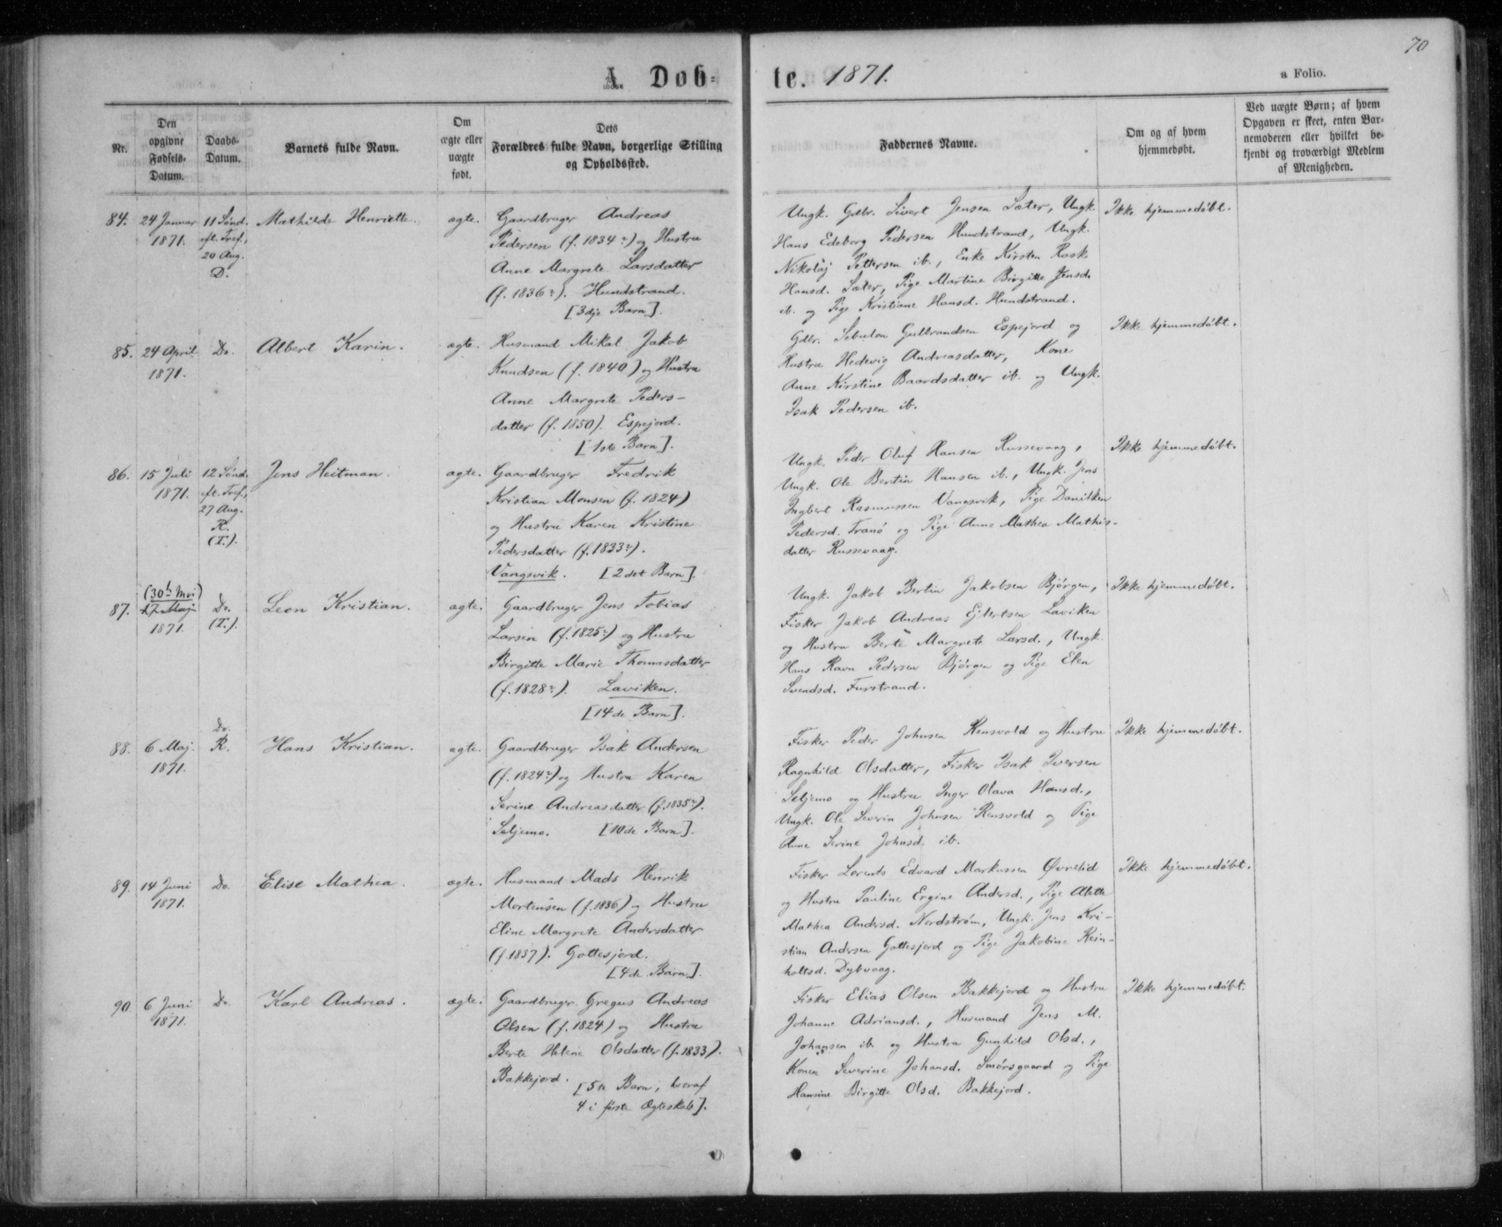 70
A. Døb-
te. 1871.
a Folio.
Nr.
Den
opgivne
Fødsels-
Datum.
Daabs-
Datum.
Barnets fulde Navn.
Om
ægte eller
uægte
født.
Dets
Forældres fulde Navn, borgerlige Stilling
og Opholdssted.
Faddernes Navne.
Om og af hvem
hjemmedøbt.
Ved uægte Børn; af hvem
Opgaven er skeet, enten Bar-
nemoderen eller hvilket be-
kjendt og troværdigt Medlem
af Menigheden.
84.
24 Januar
1871.
11 Sønd.
eft. Tref.,
20 Aug.
D.
Mathilde Henriette.
ægte.
Gaardbruger Andreas
Pedersen (f. 1834) og Hustru
Anne Margrete Larsdatter
(f. 1836). Hundstrand.
[3die Barn].
Ungk. Gdbr. Sivert Jensen Sæter, Ungk.
Hans Edeborg Pedersen Hundstrand, Ungk.
Nikolaj Pettersen ib., Enke Kirsten Rask
Hansd. Sæter, Pige Martine Birgitte Jensd.
ib. og Pige Kristiane Hansd. Hundstrand.
Ikke hjemmedøbt.
85.
24 April
1871.
Do.
Albert Karin.
ægte.
Husmand Mikal Jakob
Knudsen (f. 1840) og Hustru
Anne Margrete Peders-
datter (f. 1850). Espejord.
[1ste Barn].
Gdbr. Sebulon Gulbrandsen Espejord og
Hustru Hedevig Andreasdatter, Kone
Anne Kirstine Baardsdatter ib. og Ungk.
Isak Pedersen ib.
Ikke hjemmedøbt.
86.
15 Juli
1871.
12 Sønd.
eft. Tref.,
27 Aug.
R.
(T.).
Jens Heitman.
ægte.
Gaardbruger Fredrik
Kristian Monsen (f. 1824)
og Hustru Karen Kristine
Pedersdatter (f. 1833).
Vangsvik. [2det Barn].
Ungk. Peder Oluf Hansen Russevaag,
Ungk. Ole Bertin Hansen ib., Ungk. Jens
Ingbert Rasmussen Vangsvik, Pige Danilken
Pedersd. Tranø og Pige Anne Mathea Mathis-
datter Russevaag.
Ikke hjemmedøbt.
87.
(30te Mai)
17 Maj
1871.
Do.
(T.).
Leon Kristian.
ægte.
Gaardbruger Jens Tobias
Larsen (f. 1825) og Hustru
Birgitte Marie Thomasdatter
(f. 1828). Laviken.
[14de Barn].
Ungk. Jakob Bertin Jakobsen Bjørgen,
Fisker Jakob Andreas Ejlertsen Laviken
og Hustru Berte Margrete Larsd., Ungk.
Hans Ravn Pedersen Bjørgen og Pige Elen
Svendsd. Furstrand.
Ikke hjemmedøbt.
88.
6 Maj
1871.
Do.
R.
Hans Kristian.
ægte.
Gaardbruger Isak Andersen
(f. 1824) og Hustru Karen
Serine Andreasdatter (f. 1835).
Seljemo. [10de Barn].
Fisker Peder Johnsen Rensvold og Hustru
Ragnhild Olsdatter, Fisker Isak Iversen
Seljemo og Hustru Inger Olava Hansd.,
Ungk. Ole Severin Johnsen Rensvold og Pige
Anne Serine Johnsd. ib.
Ikke hjemmedøbt.
89.
14 Juni
1871.
Do.
Elise Mathea.
ægte.
Husmand Mads Henrik
Mortensen (f. 1836) og Hustru
Eline Margrete Andersdatter
(f. 1837). Gottesjord.
[4de Barn].
Fisker Lorents Edvard Markussen Øvrelid
og Hustru Pauline Ergine Andersd., Pige Alette
Mathea Andersd. Nordstrøm, Ungk. Jens Kri-
stian Andersen Gottesjord og Pige Jakobine Rein-
holtsd. Dybvaag.
Ikke hjemmedøbt.
90
6 Juni
1871.
Do.
Karl Andreas.
ægte.
Gaardbruger Gregus Andreas
Olsen (f. 1824) og Hustru
Berte Helene Olsdatter (f. 1833).
Bakkejord.
[5te Barn, hvoraf
4 i første Ægteskab].
Fisker Elias Olsen Bakkejord og Hustru
Johanne Adriansd., Husmand Jens M.
Johansen ib. og Hustru Gunhild Olsd.,
Konen Severine Johansd. Smørsgaard og Pige
Hansine Birgitte Olsd. Bakkejord.
Ikke hjemmedøbt.